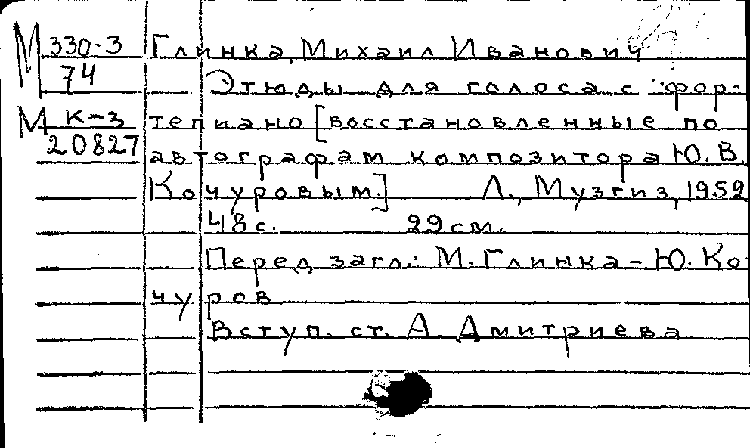 М 330-3 Глинка, Михаил Иванович
74 Этюды для голоса с фор-
М К-з тепиано [восстановленные по
20827 автографам композитора Ю. В.
Кочуровым.] Л., Музгиз, 1952
48 с. 29 см.
Перед загл.: М. Глинка - Ю. Ко
чуров
Вступ. ст. А. Дмитриева